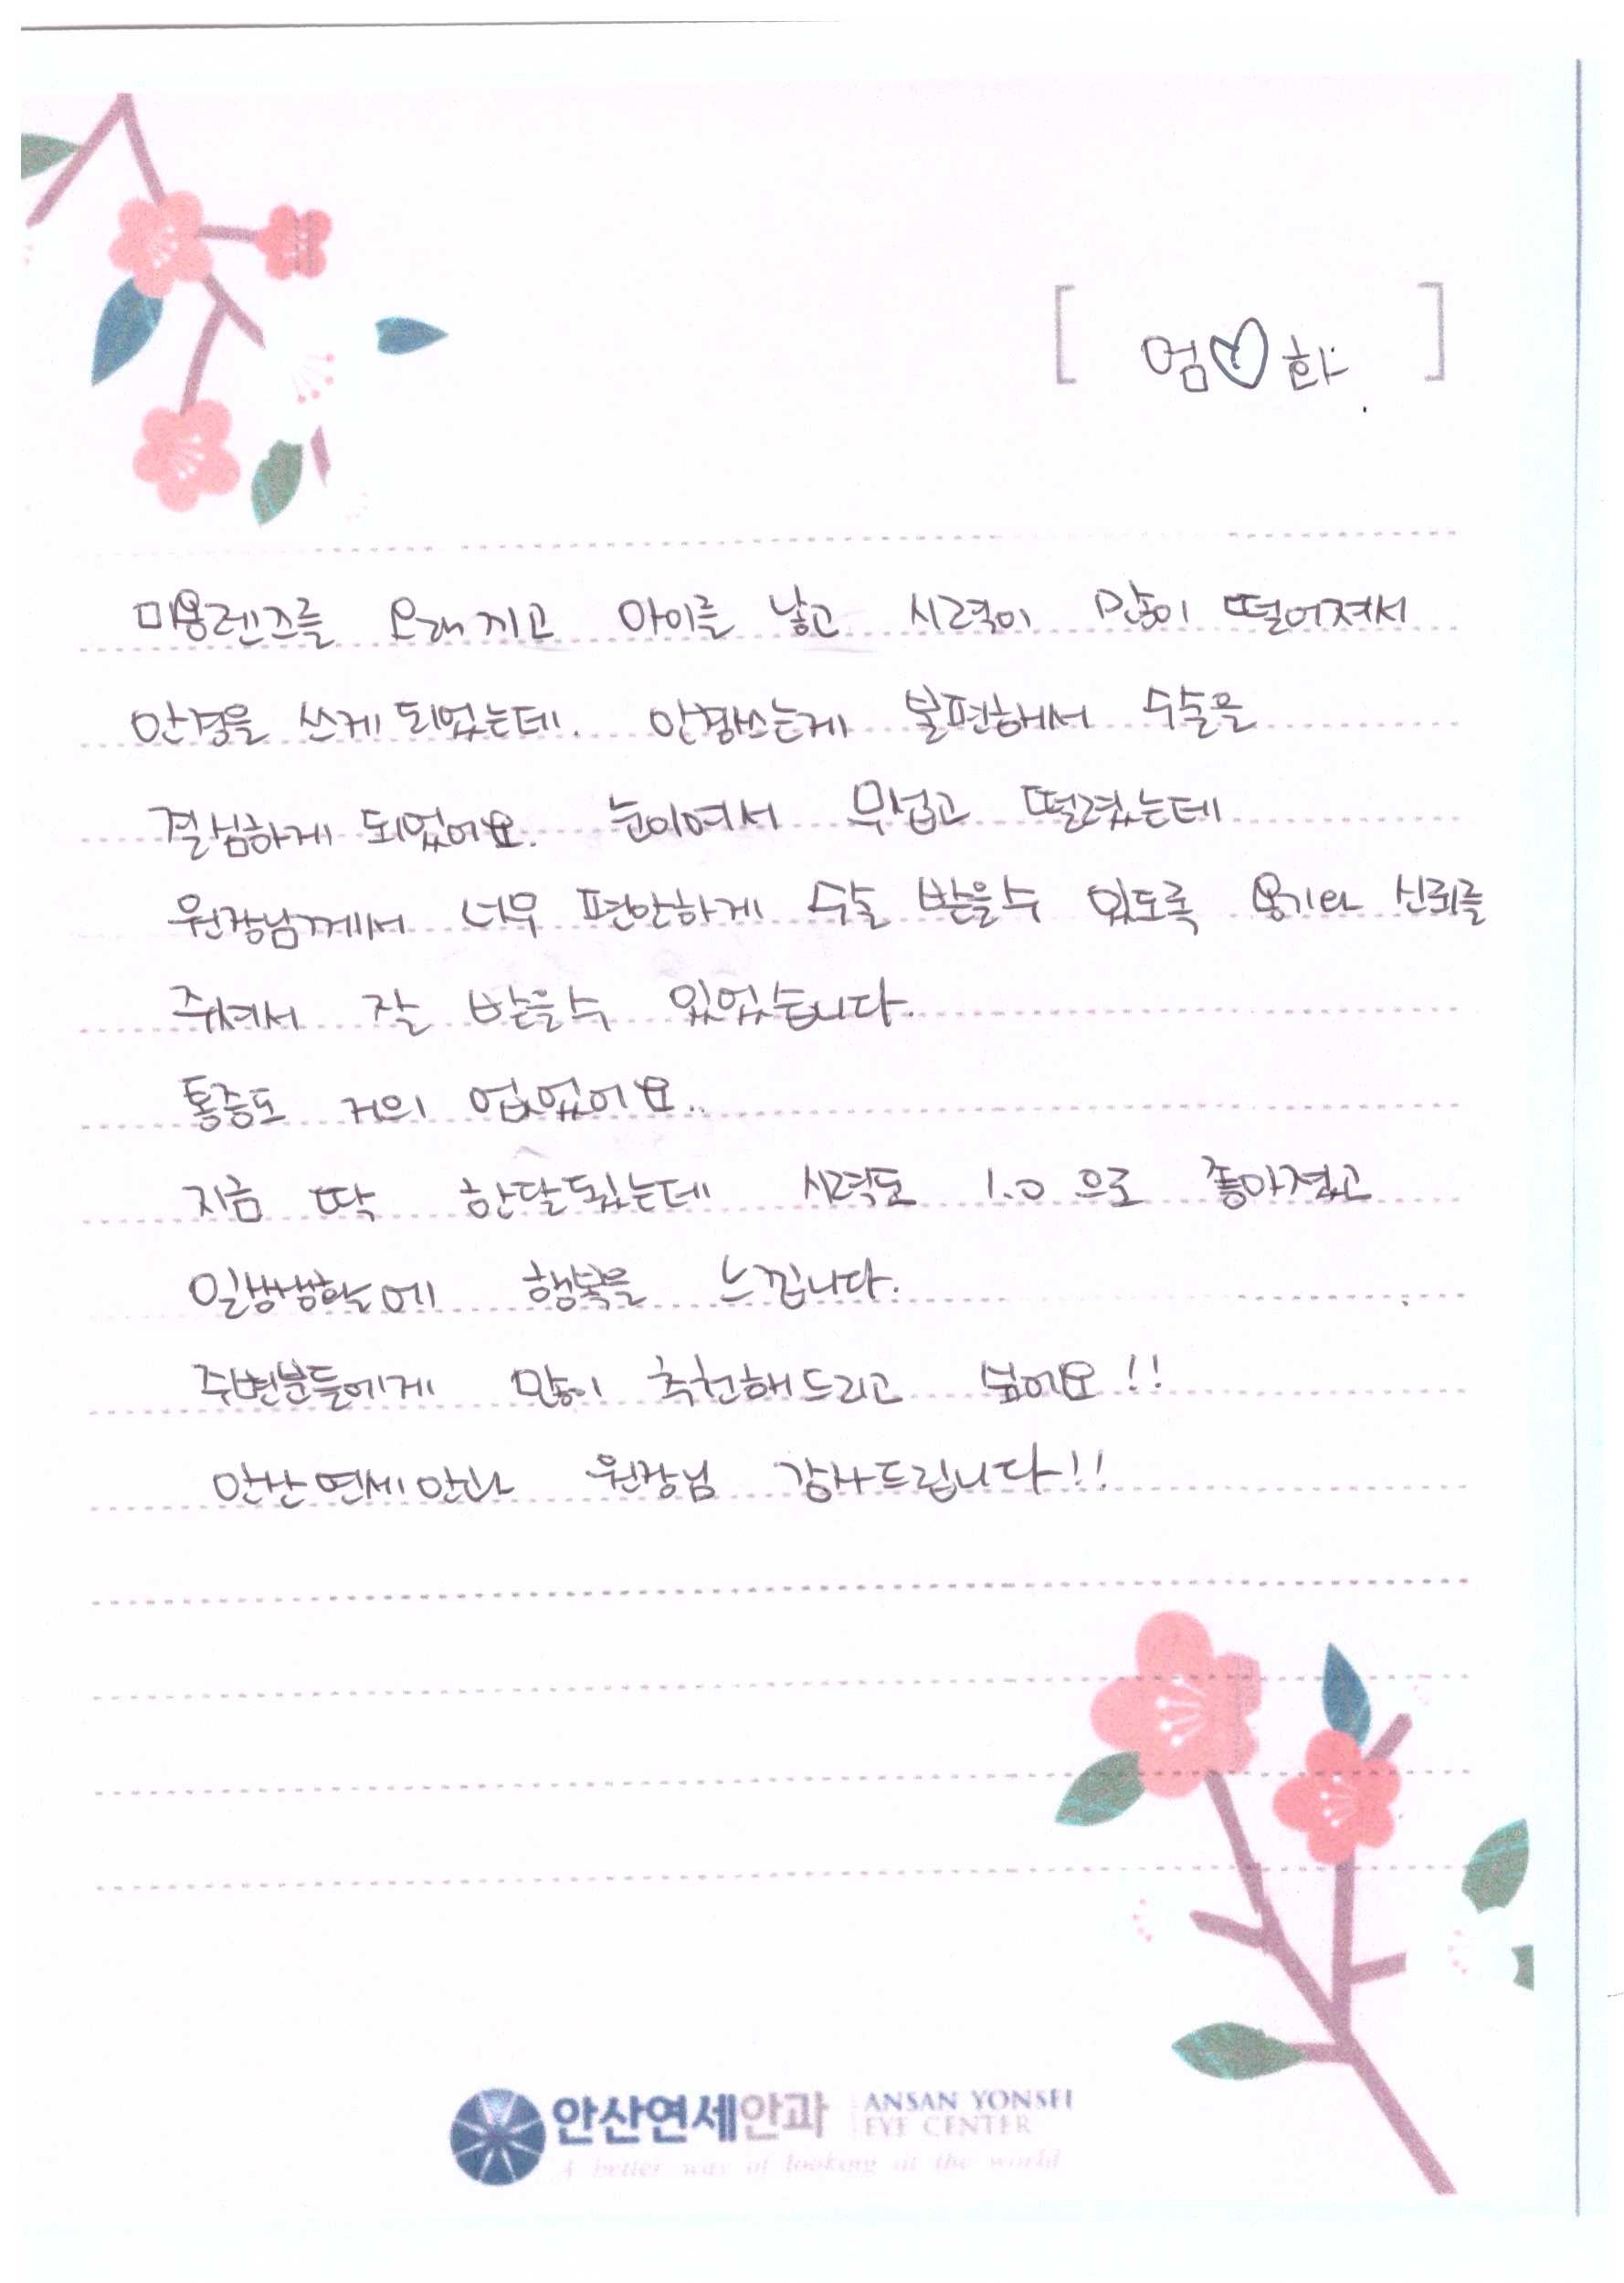 [ 엄♡화 ]
미용렌즈를 오래끼고 아이를 낳고 시력이 많이 떨어져서
안경을 쓰게 되었는데. 안경쓰는게 불편해서 수술을
결심하게 되었어요. 눈이여서 무섭고 떨렸는데
원장님께서 너무 편안하게 수술 받을수 있도록 용기와 신뢰를
주셔서 잘 받을수 있었습니다.
통증도 거의 없었어요..
지금 딱 한달됐는데 시력도 1.0으로 좋아졌고
일상생활에 행복을 느낍니다.
주변분들에게 많이 추천해드리고 싶어요!!
안산연세안과 원장님 감사드립니다!!
안산연세안과 ANSAN YONSEI
EYE CENTER
A better way of looking at the world